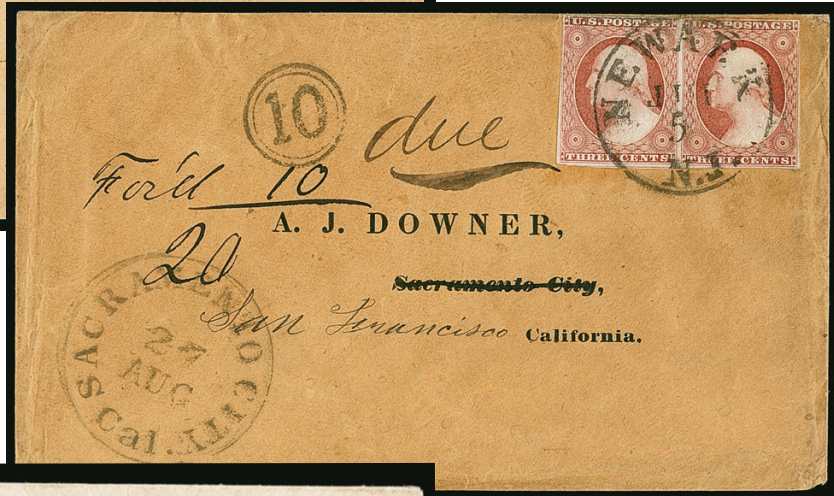 U.S. POSTAGE U.S. POSTAGE
THREE CENTS THREE CENTS
NEWARK
5
N.J.
10
due
For'd 10
20
A. J. DOWNER,
Sacramento City,
San Francisco California.
SACRAMENTO CITY
27
AUG
Cal.